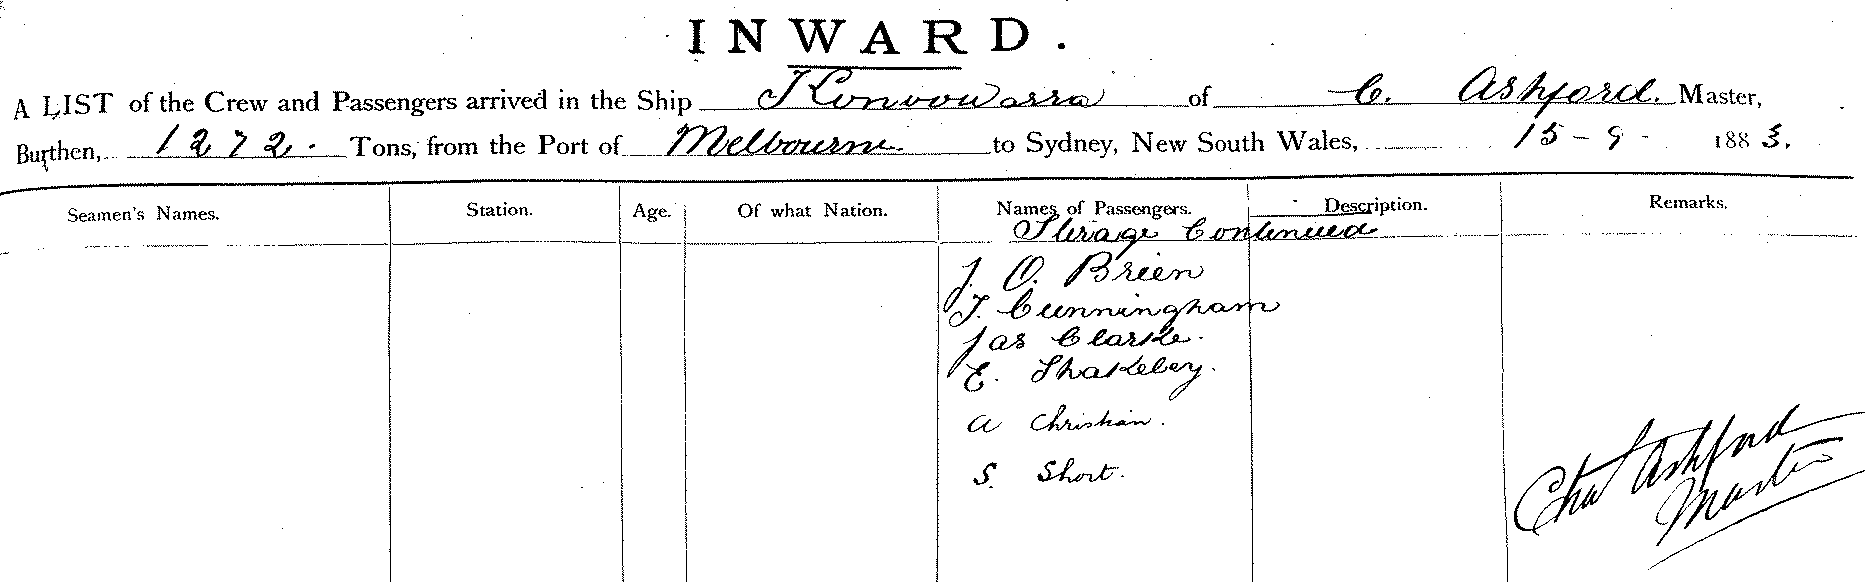 INWARD.
A LIST of the Crew and Passengers arrived in the Ship Konoowarra of C. Ashford. Master,
Burthen, 1272. Tons, from the Port of Melbourne to Sydney, New South Wales, 15-9- 1883.
Seamen's Names. Station. Age. Of what Nation. Names of Passengers. Description. Remarks.
Sterage Continued
J. O. Brien
T. Cunningham
Jas Clarke.
E. Shakeley.
A Christian.
S. Short.
Chas Ashford
Master